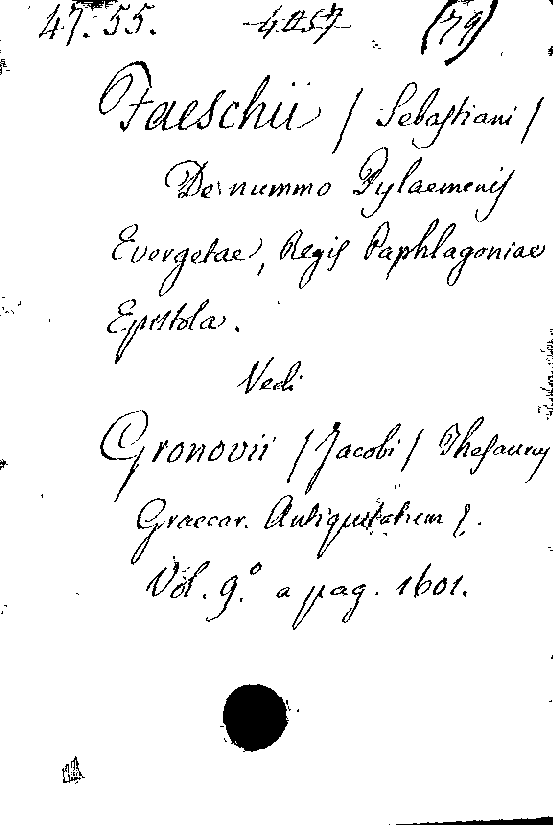 47. 55. 4057 (79)
Faeschii / Sebastiani /
De nummo Pylaemenis
Evergetae, Regis Paphlagoniae
Epistola.
Vedi
Gronovii / Jacobi / Thesaurus
Graecar. Antiquitatum
Vol. 9.° a pag. 1601.